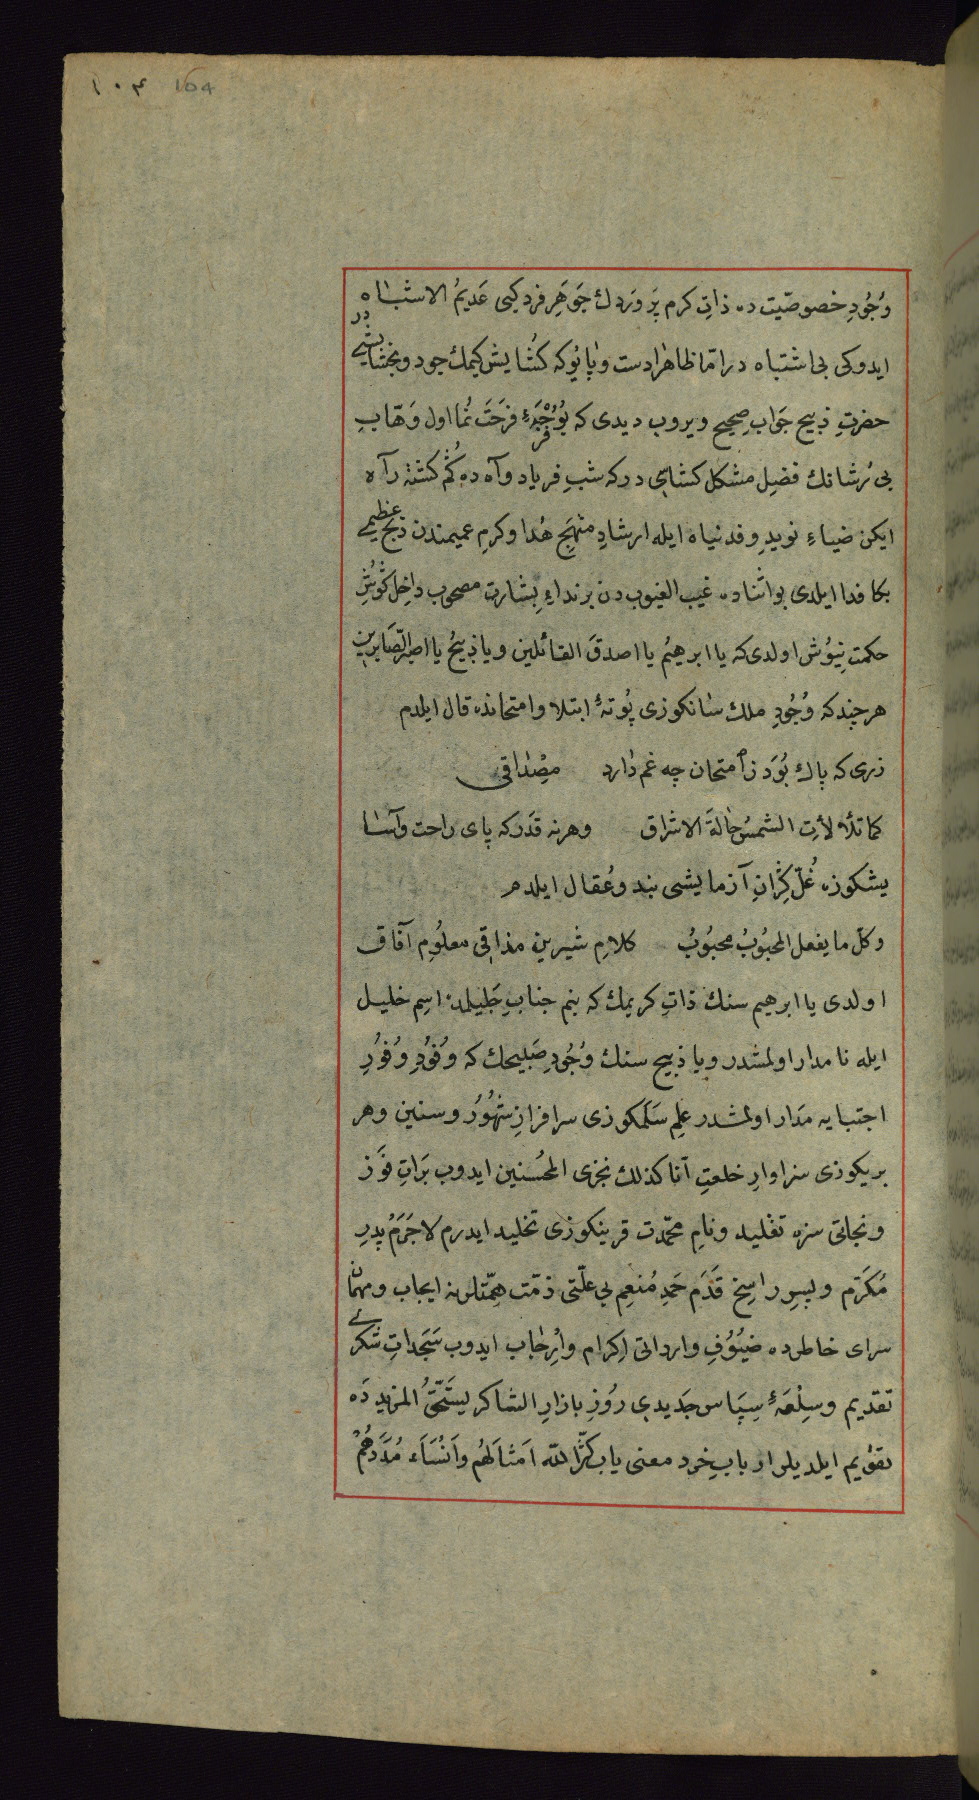 ١٠٤ 104
وُجُودِ خصوصّیت ده ذاتِ کرم پَروَردك جَوهَرِ فرد کبی عَدیمُ الاشتباه
ایدوکی بی اشتباه در امّا ظاهرًا دست وپایُوکه کُشایش کیمك جود وبخشایشی در
حضرتِ ذبیح جَوابِ صحیح ویروب دیدی که بُو فُرْجَهٔ فرحَت نُما اول وَهّابِ
بی نُرشانك فضیل مشکل کشاسی درکه شبِ فریاد وآه ده کُم کشتهٔ راه
ایکن ضیاءِ نویدِ وفدنیاه ایله ارشادِ مَنْهَجِ هُدا وکرمِ عمیمندن ذبحِ عظیمی
بکا فدا ایلدی بو اثناده غیب الغیوب دن برنداءِ بِشارت مصحوب داخِلِ کُوشِ
حکمت نِیُوش اولدی که یا ابرهیمُ یا اصدقَ القائلین ویا ذبیحُ یا اصبر الصّابرین
هرچند که وُجُودِ ملك سانکوزی پُوتهٔ ابتلا وامتحانده قال ایلدم
زری که پاك بُوَد ز امتحان چه غم دارد مِصْداقی
کما تلألأتِ الشمسُ حالةَ الاشراق وهرنه قدَرکه پای راحت وآسا
یشکوزه غُلِّ کِرانِ آزمایشی بند وعُقال ایلدم
وکلّ ما یفعل المحبُوبُ محبُوبُ کلامِ شیرین مذاقی معلُومِ آفاق
اولدی یا ابرهیم سنك ذاتِ کریمك که بنم جنابِ جَلیلمه اسِم خلیل
ایله نامدار اولمشدر ویا ذبیح سنك وُجُودِ صَبیحك که وُفُودِ وُفُورِ
اجتبایه مَدار اولمشدر علِم سَلَمکوزی سرافرازِ شُهُورُ وسنین وهر
بریکوزی سزاوارِ خلعتِ انّا کذلك نجزی المحُسنین ایدوب بَراتِ فَوز
ونجاتی سزه تقلید ونامِ محمّدت قرینکوزی تخلید ایدرم لاجَرَمُ پدرِ
مُکرّم وپسِر راسِخ قَدَم حَمدِ مُنعِم بی علّتی ذمّت هِمّتلرینه ایجاب ومهمان
سرای خاطرده ضیُوفِ وارداتی اِکرام واِرحاب ایدوب سَجَداتِ شکری
تقدیم وسِلْعهٔ سِپاسِ جَدیدی رُوزِ بازارِ الشاکر یستَحقُّ المزید ده
تقوُیم ایلدیلر اربابِ خِرد معنی یاب کثّر الله اَمثالَهُم وَاَنْسَاَء مُدَّدهُمْ